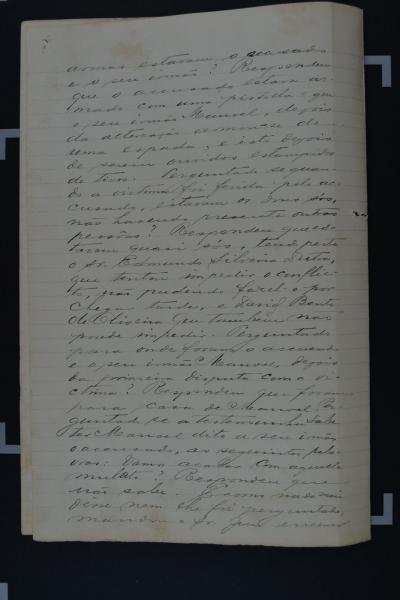 armas estavam o accusado
e o seu irmão? Respondeu
que o accusado estava ar-
mado com uma pistolla e que
o seu irmão Manoel, depois
da altercação armou-se de
uma espada, e isto depois
de serem ouvidos estampidos
de tiros. Perguntado se quan-
do a victima foi ferida pelo ac-
cusado, estavam os dous sós,
não havendo presente outras
pessôas? Respondeu que es-
tavam quasi sós, tendo perto
o Sr. Edmundo Silveira
que tentou impedir o conflic-
to, não pudendo fazel-o por
chegar tarde, e David Bento
de Oliveira que tambem não
poude impedir. Perguntado
para onde foram o accusado
e o seu irmão Manoel, depois
da primeira disputa com a vi-
ctima? Respondeu que foram
para casa de Manoel. Per-
guntado se a testemunha sabe
ter Manoel dito a seu irmão
o accusado, as seguintes pala-
vras: Vamos acabar com aquelle
mulato? Respondeu que
não sabe. E como nada mais
disse nem lhe foi perguntado,
mandou o Sr. Juiz encerrar